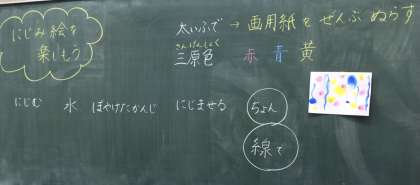 にじみ絵を
楽しもう
太いふで → 画用紙をぜんぶぬらす
さんげんしょく
三原色 赤 青 黄
にじむ 水 ぼやけたかんじ にじませる
ちょん
線で